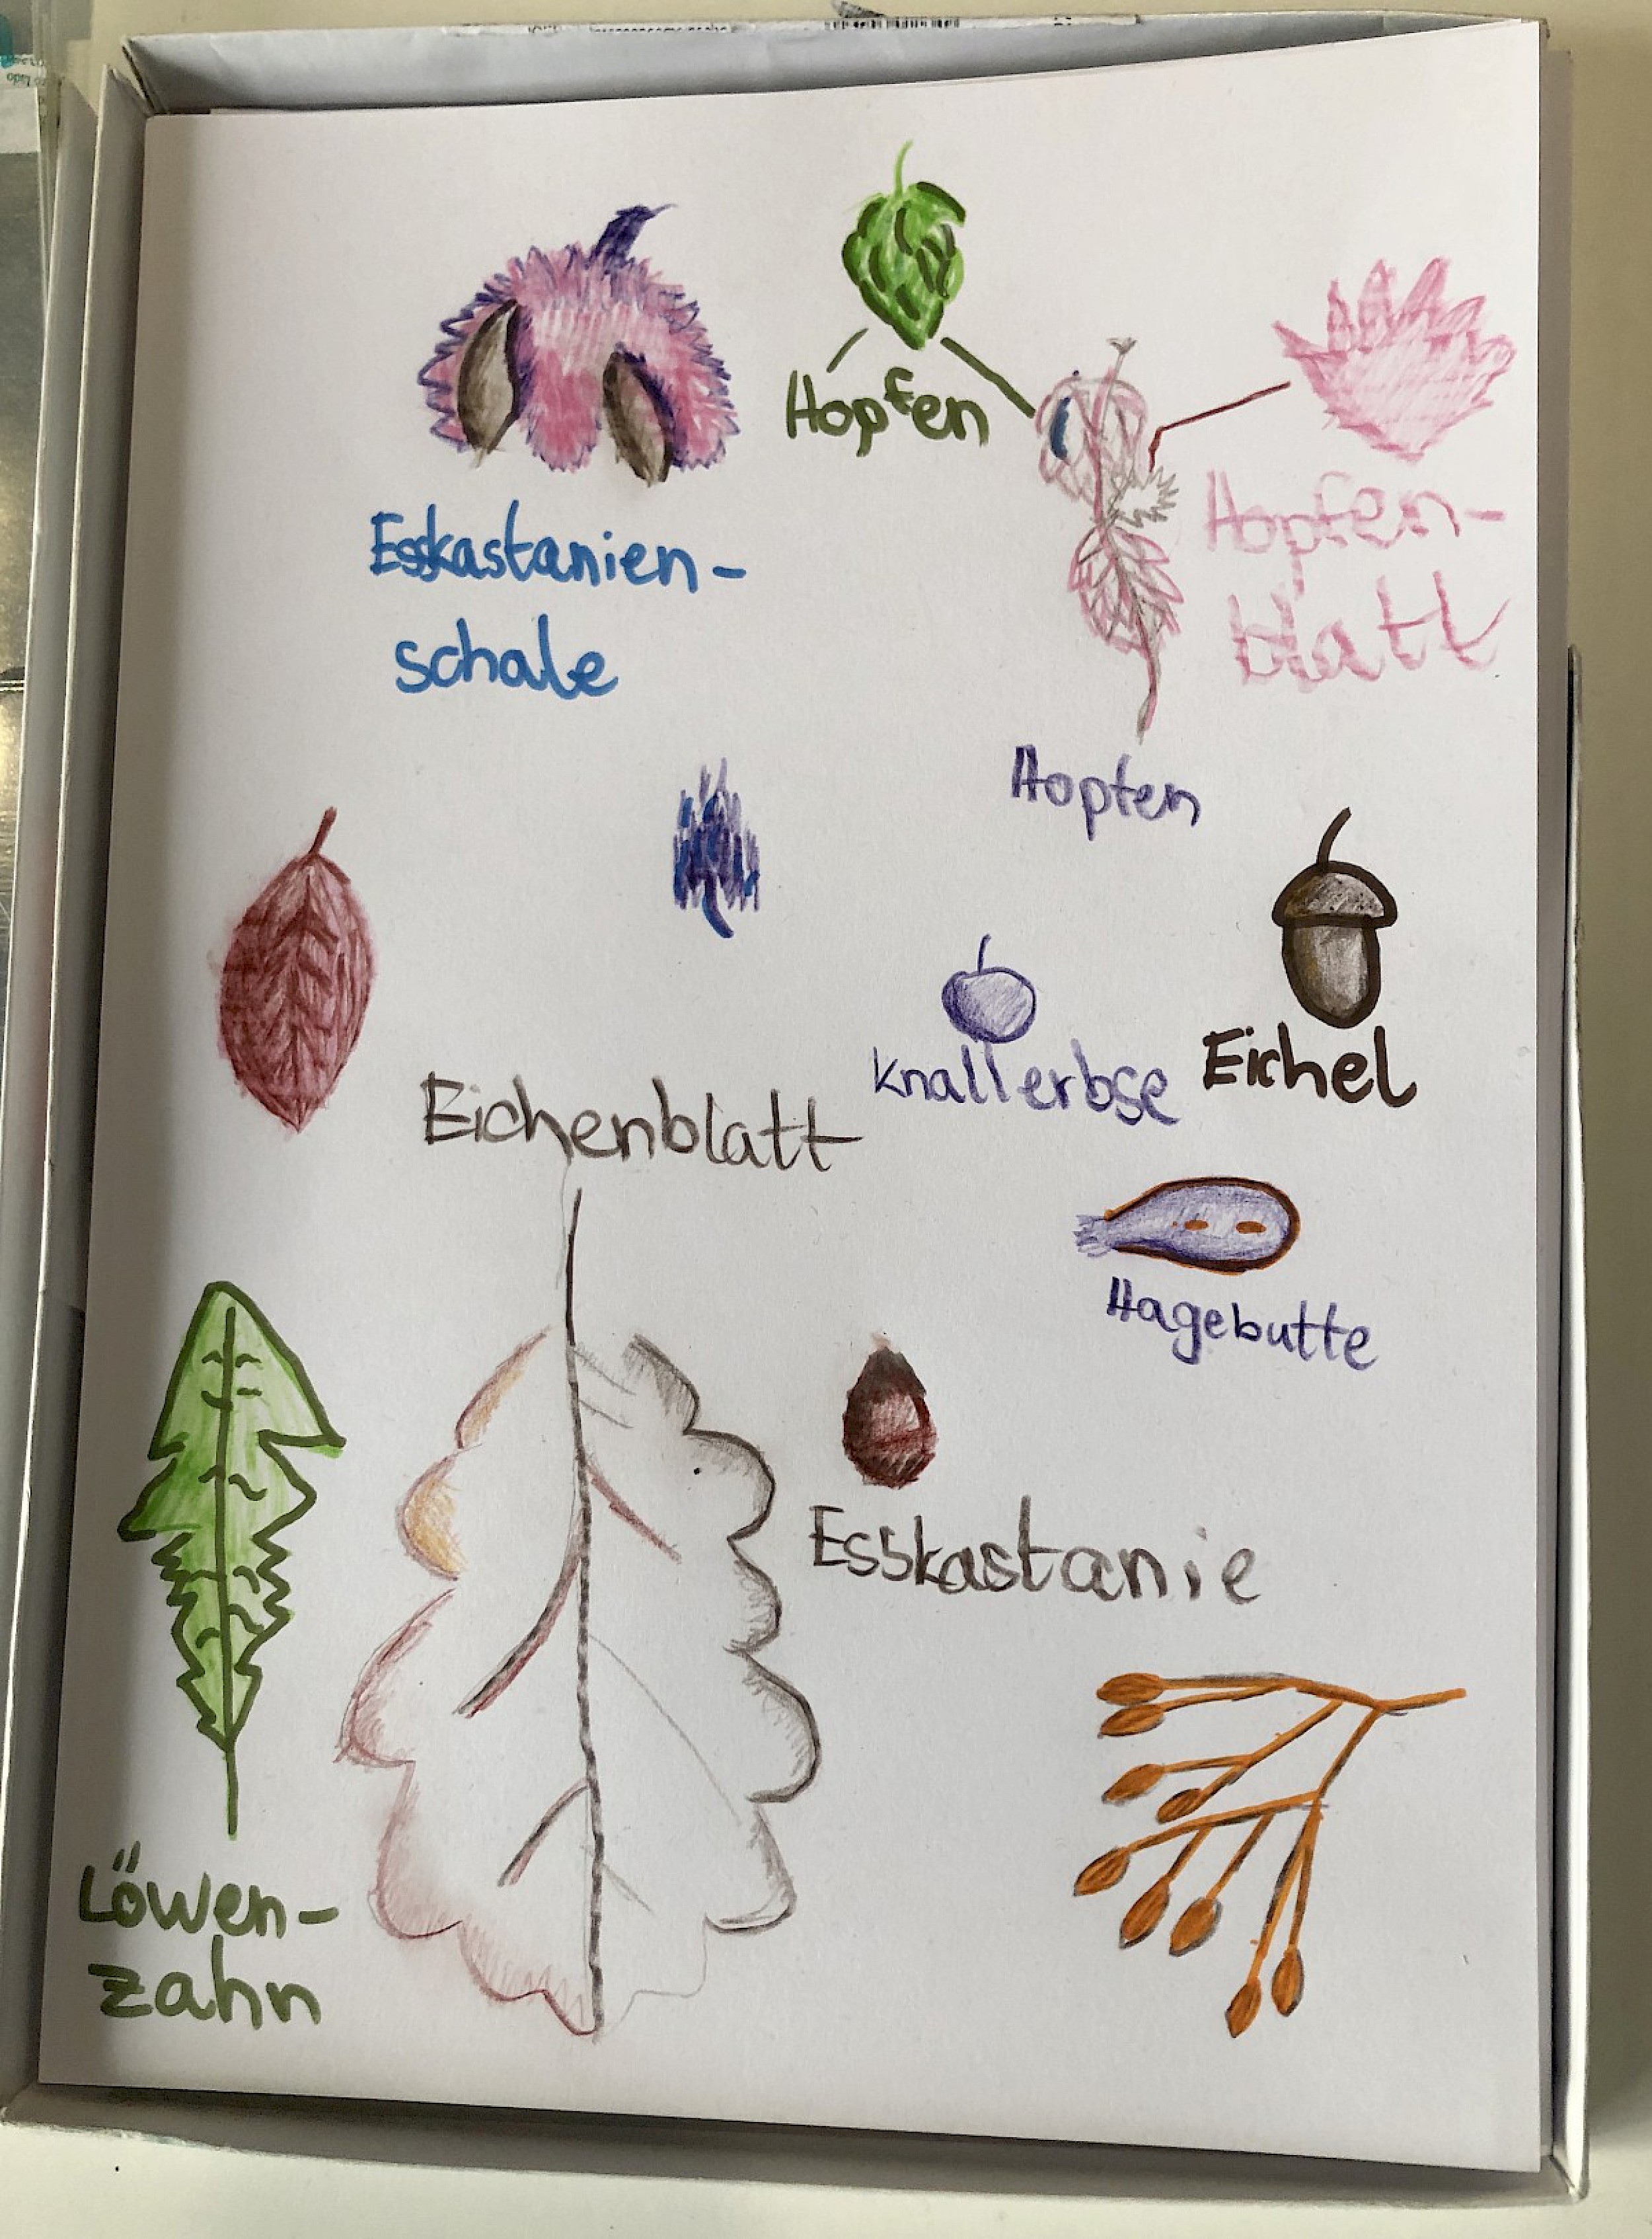 Hopfen
Esskastanien-
schale
Hopfen-
blatt
Hopfen
Knallerbse
Eichel
Eichenblatt
Hagebutte
Esskastanie
Löwen-
zahn